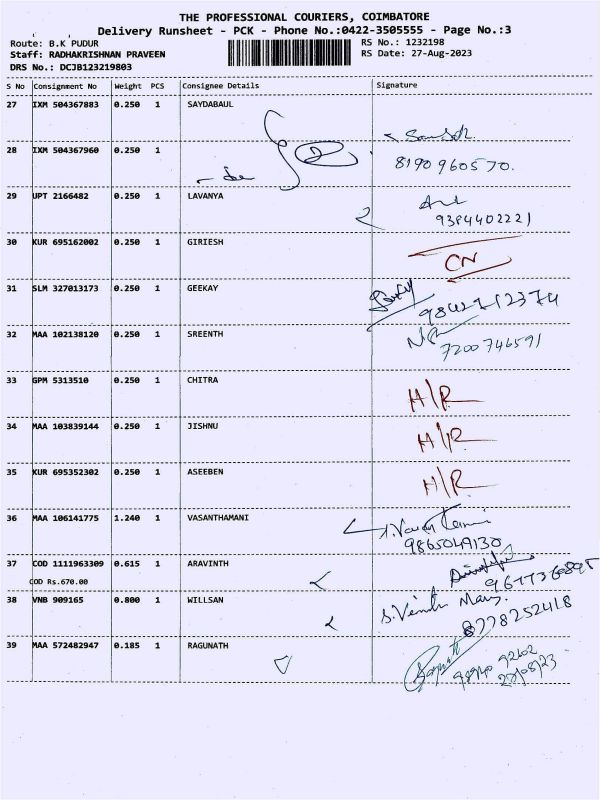 THE PROFESSIONAL COURIERS, COIMBATORE
Delivery Runsheet - PCK - Phone No.:0422-3505555 - Page No.:3
Route: B.K PUDUR RS No.: 1232198
Staff: RADHAKRISHNAN PRAVEEN RS Date: 27-Aug-2023
DRS No.: DCJB123219803
S No Consignment No Weight PCS Consignee Details Signature
27 IXM 504367883 0.250 1 SAYDABAUL
28 IXM 504367960 0.250 1 8190960570.
29 UPT 2166482 0.250 1 LAVANYA
9384402221
30 KUR 695162002 0.250 1 GIRIESH
CN
31 SLM 327013173 0.250 1 GEEKAY
32 MAA 102138120 0.250 1 SREENTH
7200746591
33 GPM 5313510 0.250 1 CHITRA
H/R
34 MAA 103839144 0.250 1 JISHNU
H/R
35 KUR 695352302 0.250 1 ASEEBEN
H/R
36 MAA 106141775 1.240 1 VASANTHAMANI
9865049130
37 COD 1111963309 0.615 1 ARAVINTH
COD Rs.670.00
38 VNB 909165 0.800 1 WILLSAN
8778252418
39 MAA 572482947 0.185 1 RAGUNATH
98940 92602
27/08/23